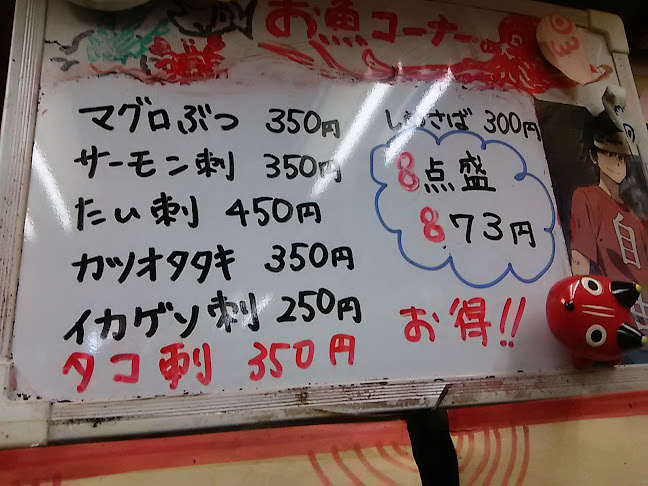 お魚コーナー
マグロぶつ 350円
サーモン刺 350円
たい刺 450円
カツオタタキ 350円
イカゲソ刺 250円
タコ刺 350円
しめさば 300円
8点盛
873円
お得!!
自由